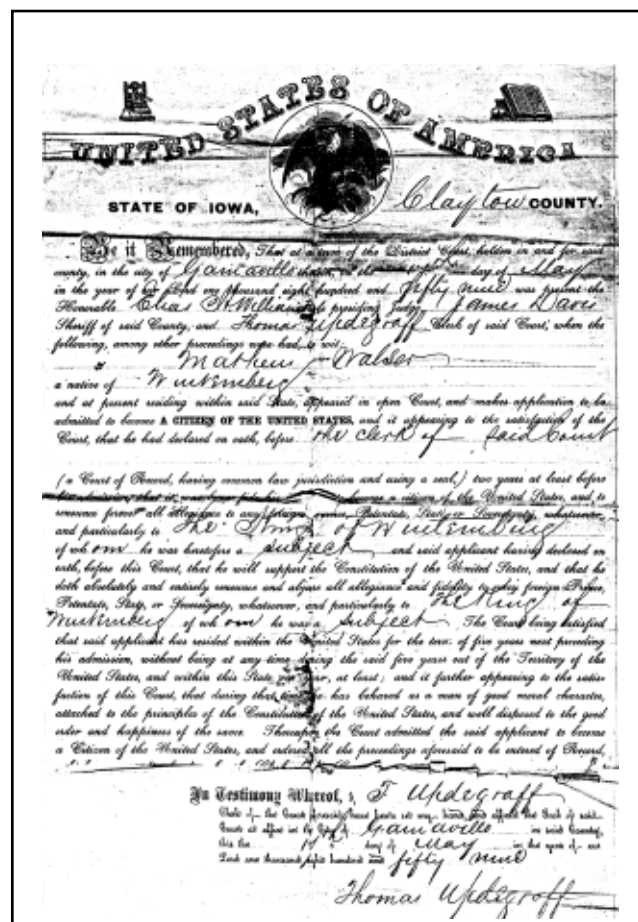 UNITED STATES OF AMERICA
STATE OF IOWA, Clayton COUNTY.
Be it Remembered, That at a term of the District Court, holden in and for said
county, in the city of Garnavillo on the day of May
in the year of our Lord one thousand eight hundred and fifty nine was present the
Honorable Elias H Williams presiding Judge, James Davis
Sheriff of said County, and Thomas Updegraff Clerk of said Court, when the
following, among other proceedings were had, to wit:
Matheus Walser
a native of Wurtemberg
and at present residing within said State, appeared in open Court, and makes application to be
admitted to become A CITIZEN OF THE UNITED STATES, and it appearing to the satisfaction of the
Court, that he had declared on oath, before the clerk of said Court
(a Court of Record, having common law jurisdiction and using a seal,) two years at least before
his admission, that it was become a citizen of the United States, and to
renounce forever all allegiance to any foreign Potentate, State or Sovereignty, whatsoever
and particularly to The King of Wurtemberg
of whom he was heretofore a subject and said applicant having declared on
oath, before this Court, that he will support the Constitution of the United States, and that he
doth absolutely and entirely renounce and abjure all allegiance and fidelity to every foreign Prince,
Potentate, State, or Sovereignty, whatsoever, and particularly to The King of
Wurtemberg of whom he was a subject The Court being satisfied
that said applicant has resided within the United States for the term of five years next preceding
his admission, without being at any time during the said five years out of the Territory of the
United States, and within this State one year, at least; and it further appearing to the satis-
faction of this Court, that during that time he has behaved as a man of good moral character,
attached to the principles of the Constitution of the United States, and well disposed to the good
order and happiness of the same. Thereupon the Court admitted the said applicant to become
a Citizen of the United States, and ordered all the proceedings aforesaid to be entered of Record,
In Testimony Whereof, I, T Updegraff
Clerk of the Court aforesaid have hereto set my hand, and affixed the Seal of said
Court at office in Garnavillo in said County,
this the day of May in the year of our
Lord one thousand eight hundred and fifty nine
Thomas Updegraff